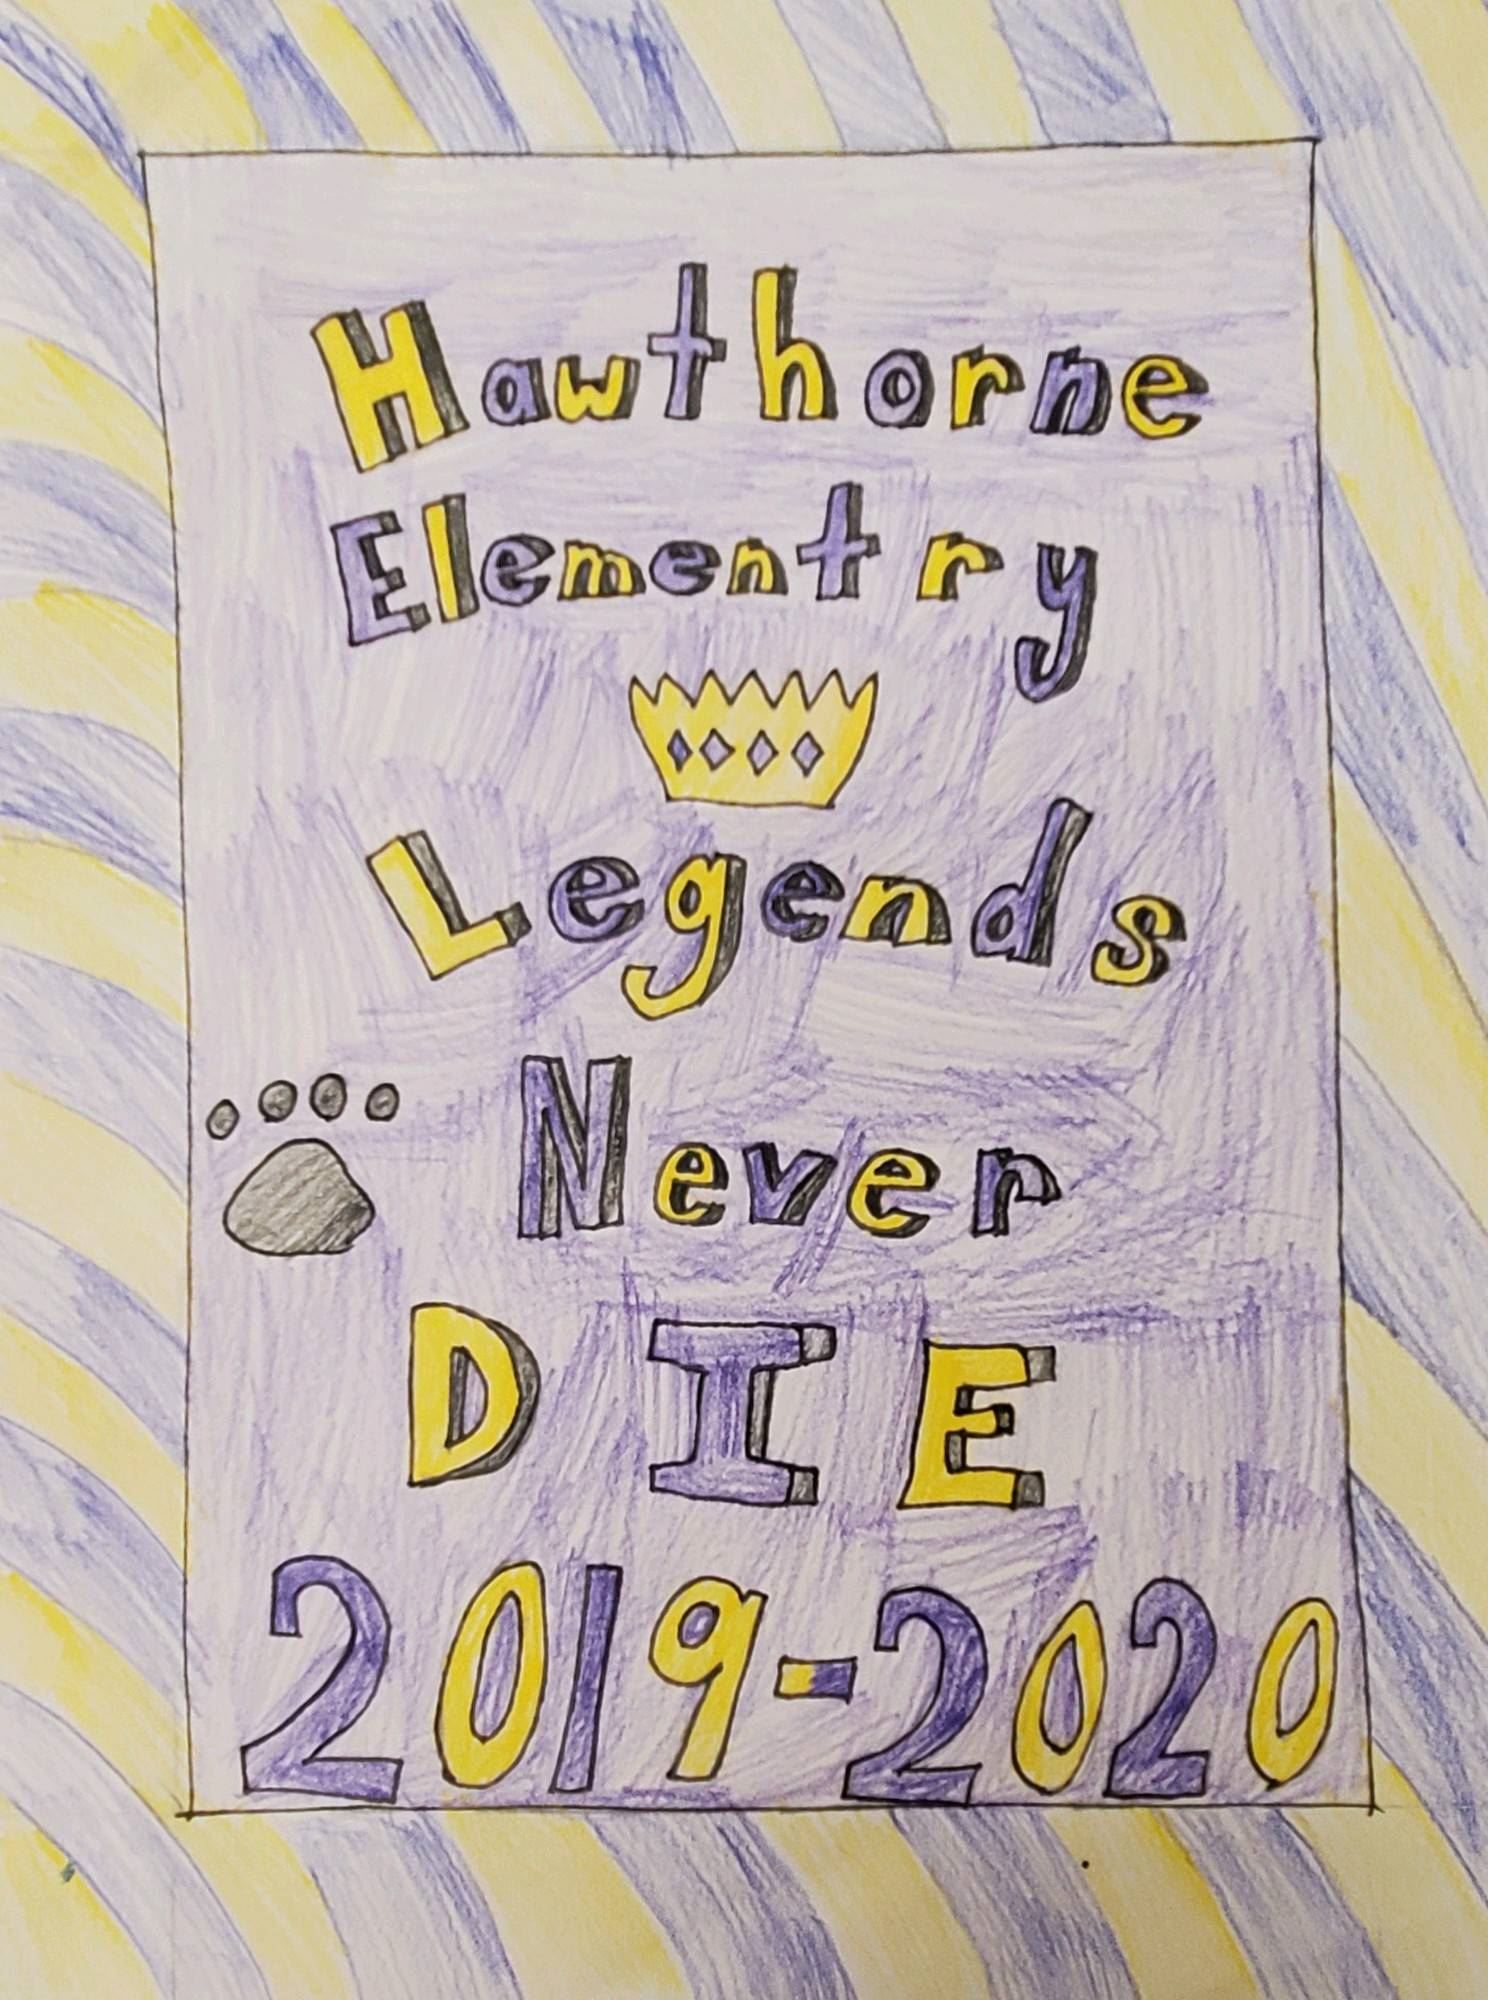 Hawthorne
Elementry
Legends
Never
DIE
2019-2020